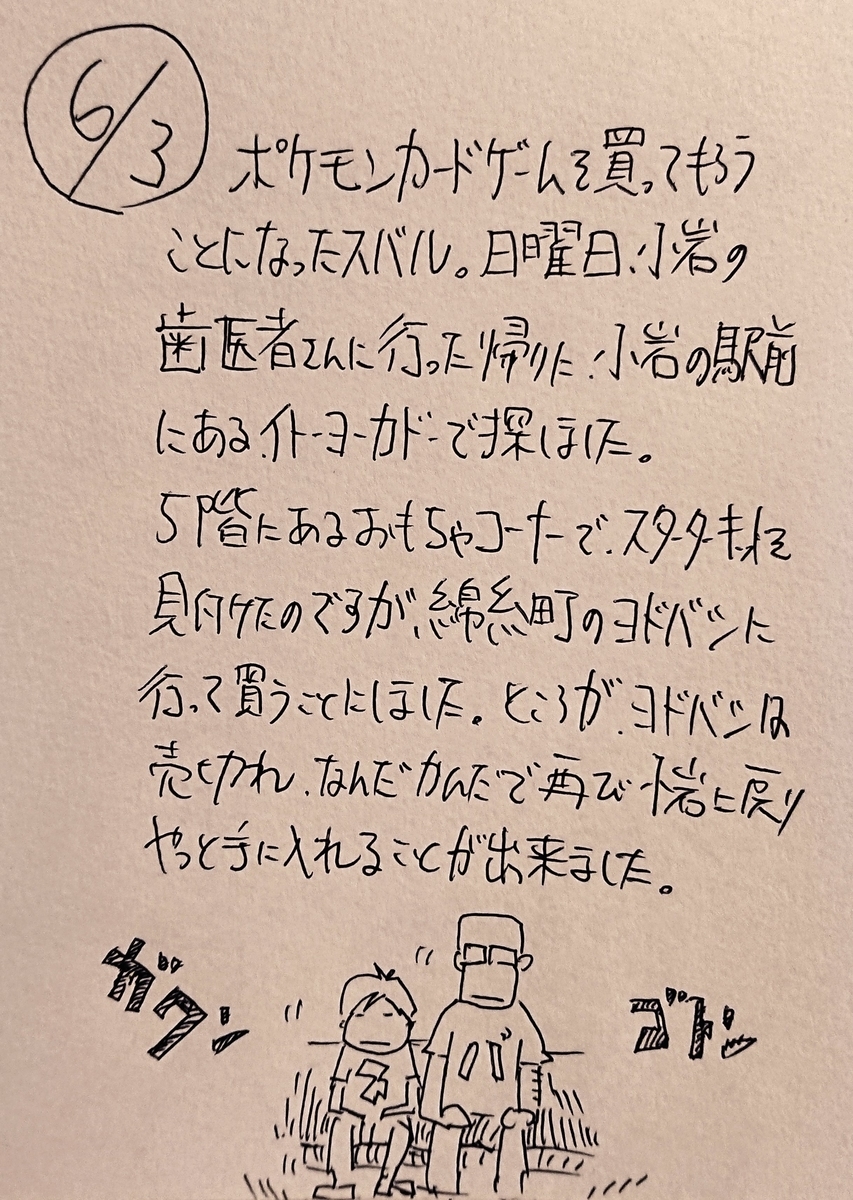 6/3
ポケモンカードゲームを買ってもらう
ことになったスバル。日曜日、小岩の
歯医者さんに行った帰りに、小岩の駅前
にある、イトーヨーカドーで探しました。
5階にあるおもちゃコーナーで、スターターキットを
見付けたのですが、錦糸町のヨドバシに
行って買うことにしました。ところが、ヨドバシは
売り切れ、なんだかんだで再び小岩に戻り
やっと手に入れることが出来ました。
ガクン
ゴトン
ス
パ